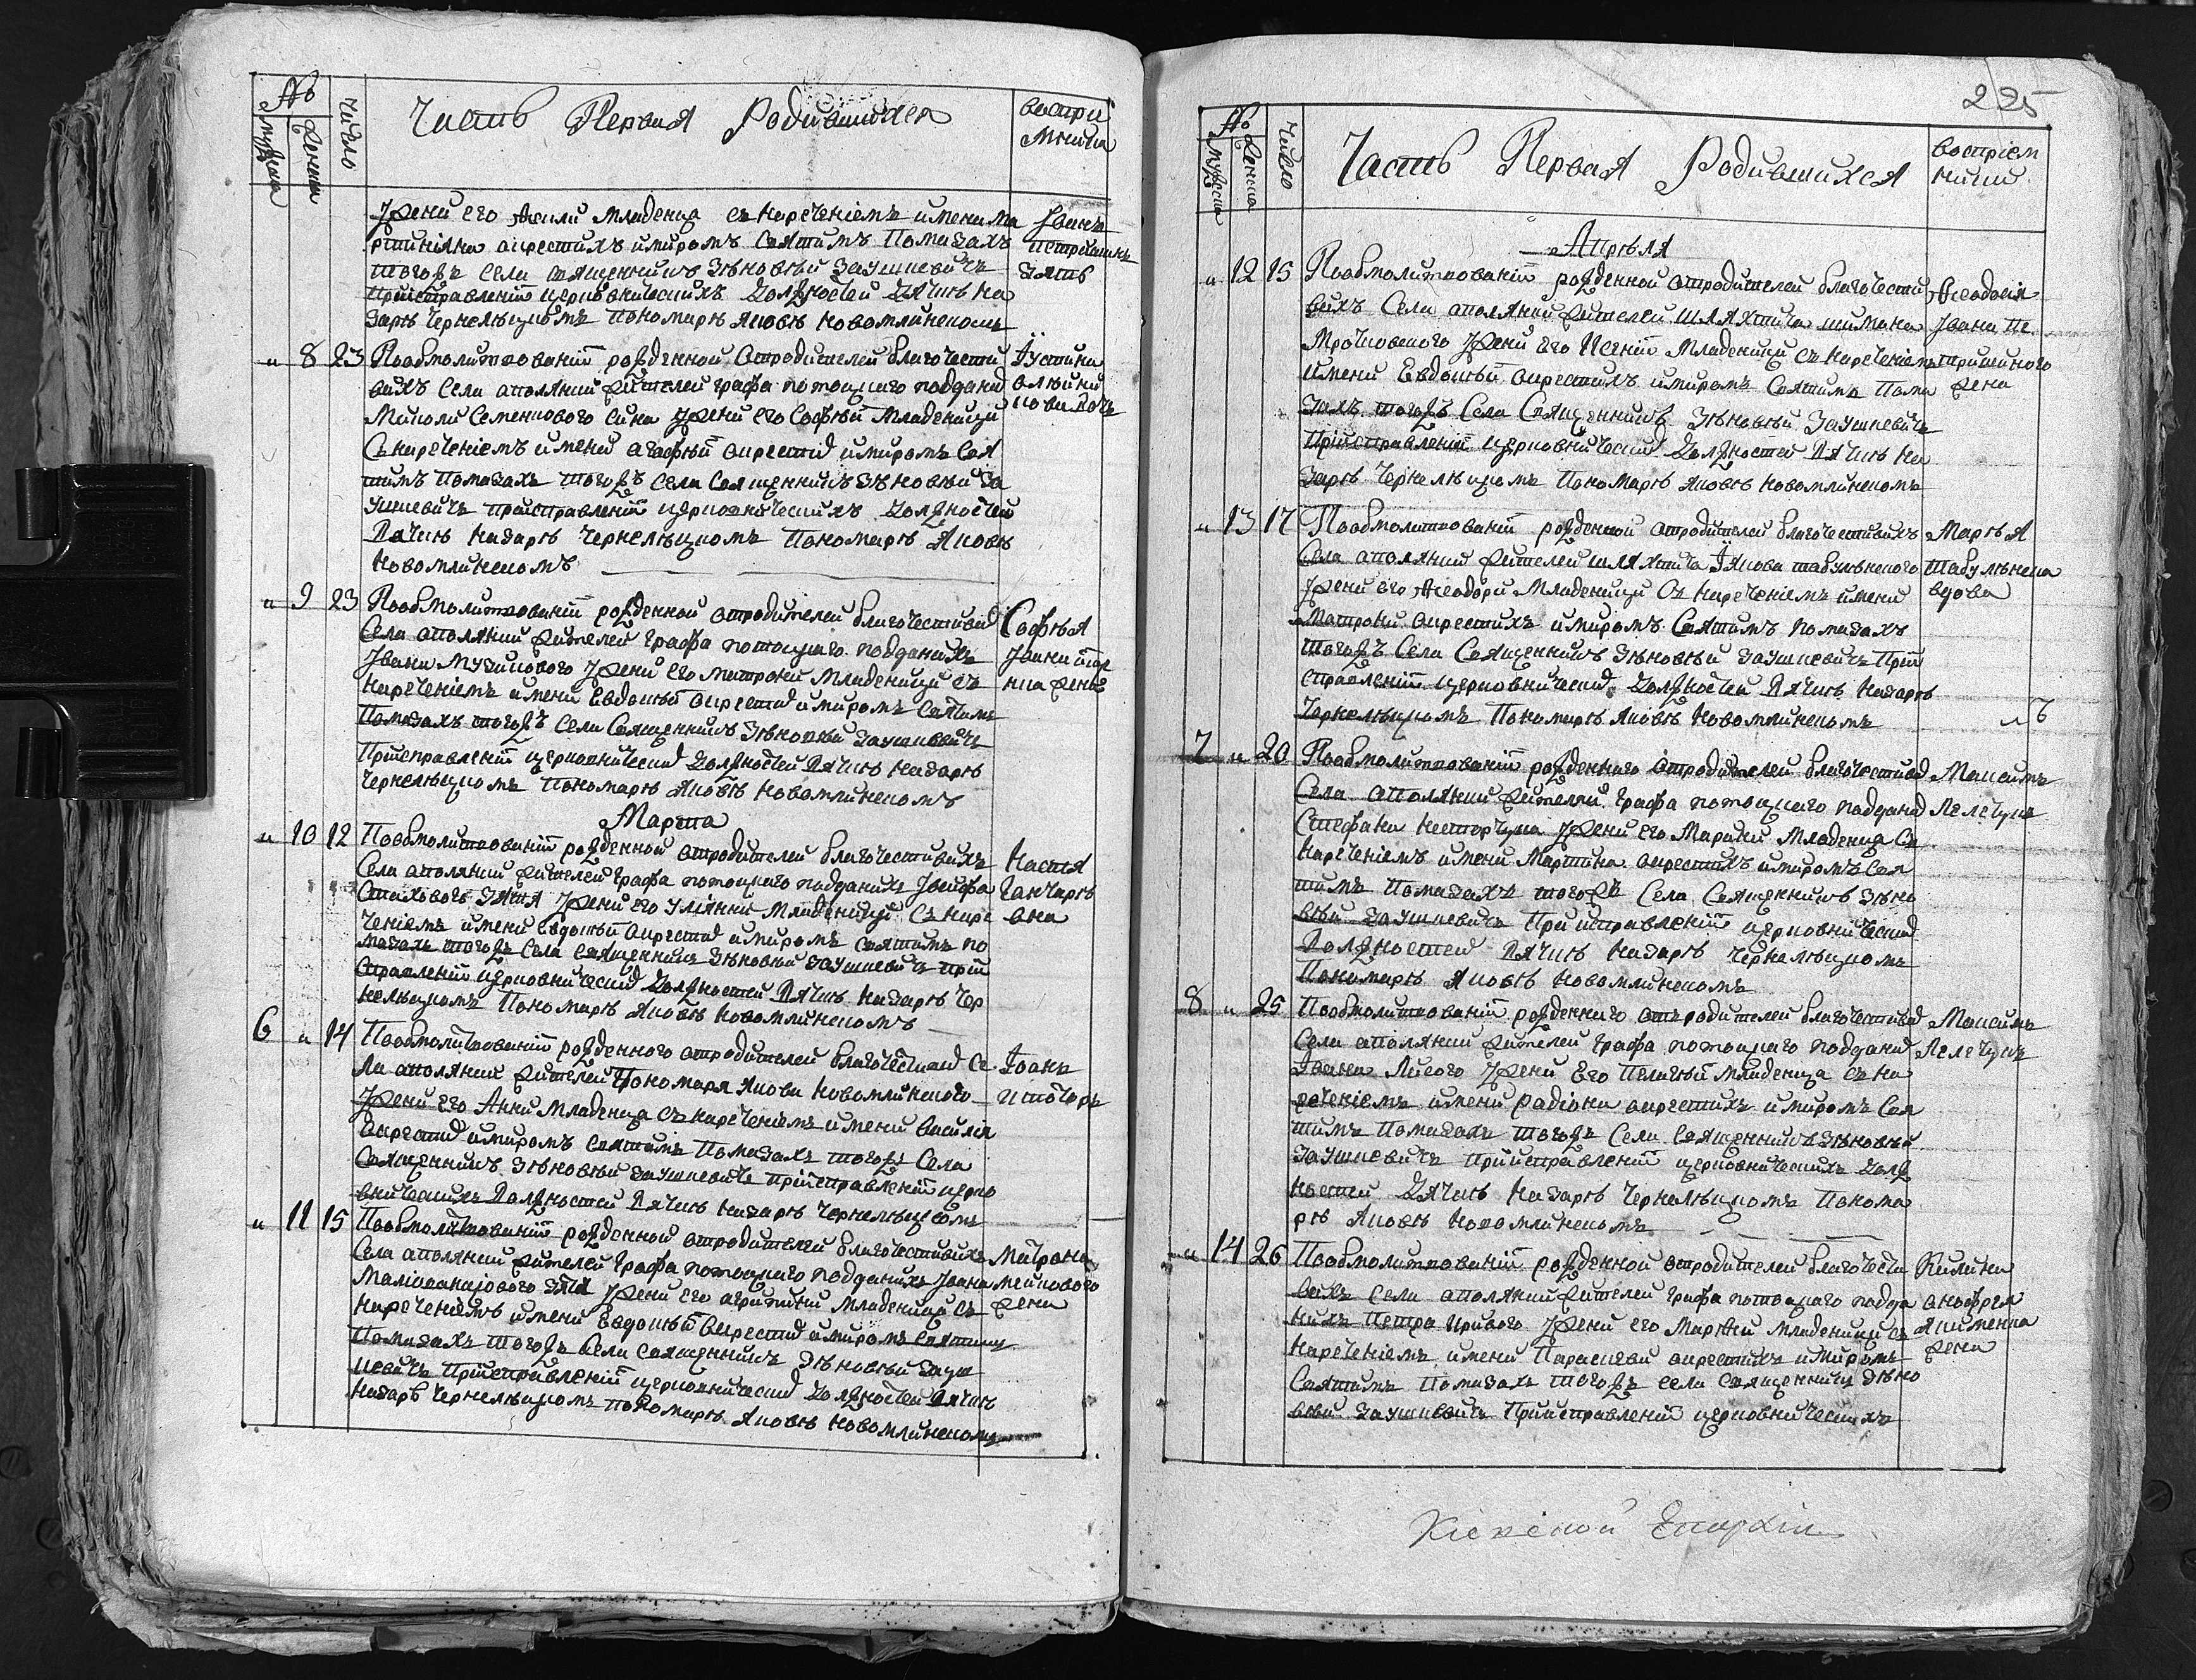 №
мужеска
женска
число
Часть Первая Родившихся
воспри
мники
Жени его Агипи младенца съ нареченіемъ имени Ма
ртиніяна окрестихъ имиромъ святимъ Помазахъ
тогожъ села священникъ Зѣновѣй Заушкевичъ
Приисправленіи церковническихъ Должностей Дячкѣ На
зарѣ Чернелѣцкомъ Пономарѣ Яковѣ Новомлинскомъ
Іванъ
зять
" 8 23
Пообмолитвованій рожденной отродителей благочести
вихъ Села аполянки жителей графа потоцкаго поддани
Миколи Семенкового сина Жени его Софѣи Младеници
Снареченіемъ имени агафѣи окрестих имиромъ Свя
тимъ Помазахъ тогожъ села Священникъ Зѣновѣй За
ушкевичъ приисправленіи церковническихъ Должностей
Дячкѣ Назарѣ Чернелѣцкомъ Пономарѣ Яковѣ
Новомлинскомъ
Іустина
олѣйни
кова дочъ
" 9 23
Пообмолитвованій рожденной отродителей благочестивих
Села аполянки жителей Графа потоцкаго подданихъ
Івана Музичкового Жени его Матрони Младеници съ
нареченіемъ имени Евдокѣи окрестих имиромъ Святимъ
Помазахъ тогожъ села Священникъ Зѣновѣй Заушкевичъ
Приисправленіи церковнических Должностей Дячкѣ Назарѣ
Чернелѣцкомъ Пономарѣ Яковѣ Новомлинскомъ
Софѣя
Івана
жена
Марта
" 10 12
Пообмолитвованій рожденной отродителей благочестивихъ
Села аполянки жителей графа потоцкаго подданихъ Іосифа
Стахового Зятя Жени его Уліянки Младеници Съ наре
ченіемъ имени Евдокѣи окрестих имиромъ святимъ по
мазахъ тогожъ Села священникъ Зѣновѣй Заушкевичъ при
справленіи церковнических Должностей Дячкѣ Назарѣ Чер
нелѣцкомъ Пономарѣ Яковѣ Новомлинскомъ
Настя
Ганчарѣ
вна
6 " 14
Пообмолитвованій рожденного отродителей благочестивих Се
ла аполянки жителей Пономаря Якова Новомлинского
Жени его Анни Младенца съ нареченіемъ имени Василія
окрестих имиромъ Святимъ Помазахъ тогожъ Села
Священникъ Зѣновѣй Заушкевичъ приисправленіи церко
вническихъ Должностей Дячкѣ Назарѣ Чернелѣцкомъ
Іоанъ
" 11 15
Пообмолитвованій рожденной отродителей благочестивихъ
Села аполянки жителей графа потоцкаго подданихъ Івана
зятя Жени его агрипини Младеници съ
нареченіемъ имени Евдокѣи окрестих имиромъ святимъ
Помазахъ тогожъ Села священникъ Зѣновѣй Зауш
кевичъ Приисправленіи церковнических Должностей Дячкѣ
Назарѣ Чернелѣцкомъ пономарѣ Яковѣ Новомлинскомъ
Матрона
жена
225
№
мужеска
женска
Число
Часть Первая Родившихся
воспріем
ники
Апрѣля
" 12 15
Пообмолитвованій рожденной отродителей благочести
вихъ Села аполянки жителей шляхтича шимана
Мрочковского Жени его Ксеніи Младеници съ нареченіемъ
имени Евдокѣи окрестихъ имиромъ Святимъ Пома
захъ тогожъ Села Священникъ Зѣновѣй Заушкевичъ
Приисправленіи церковнических Должностей Дячкѣ На
зарѣ Чернелѣцкомъ Пономарѣ Яковѣ Новомлинскомъ
Феодосія
Івана Пе
жена
" 13 17
Пообмолитвованій рожденной отродителей благочестивихъ
Села аполянки жителей шляхтича Якова табулѣнского
Жени его Феодори Младеници Съ нареченіемъ имени
Матрони окрестихъ имиромъ Святимъ помазахъ
тогожъ Села Священникъ Зѣновѣй Заушкевичъ При
справленіи церковнических Должностей Дячкѣ Назарѣ
Чернелѣцкомъ Пономарѣ Яковѣ Новомлинскомъ
Марѣя
Табулѣнска
вдова
7 " 20
Пообмолитвованій рожденнаго отродителей благочестивих
Села аполянки жителей Графа потоцкаго поддани
Стефана Несторчука Жени его Марини Младенца Съ
нареченіемъ имени Мартина окрестихъ имиромъ Свя
тимъ Помазахъ тогожъ Села Священникъ Зѣно
вѣй Заушкевичъ Приисправленіи церковнических
Должностей Дячкѣ Назарѣ Чернелѣцкомъ
Пономарѣ Яковѣ Новомлинскомъ
Максимъ
Пелечукъ
8 " 25
Пообмолитвованій рожденнаго отъродителей благочестивих
Села аполянки жителей Графа потоцкаго поддани
Івана Лисого Жени Его Пелагѣи Младенца съ на
реченіемъ имени радіона окрестихъ имиромъ Свя
тимъ Помазахъ тогожъ Села Священникъ Зѣновѣй
Заушкевичъ Приисправленіи церковническихъ Долж
ностей Дячкѣ Назарѣ Чернелѣцкомъ Понома
рѣ Яковѣ Новомлинскомъ
Максимъ
Пелечукъ
" 14 26
Пообмолитвованій рожденной отродителей благочести
вихъ Села аполянки жителей Графа потоцкаго подда
нихъ Петра Кривого Жени его Марѣи Младеници съ
нареченіемъ имени Параскеви окрестихъ имиромъ
Святимъ Помазахъ тогожъ села Священникъ Зѣно
вѣй Заушкевичъ Приисправленіи церковническихъ
Килина
онофрея
Якименка
жена
Кіевской Епархіи